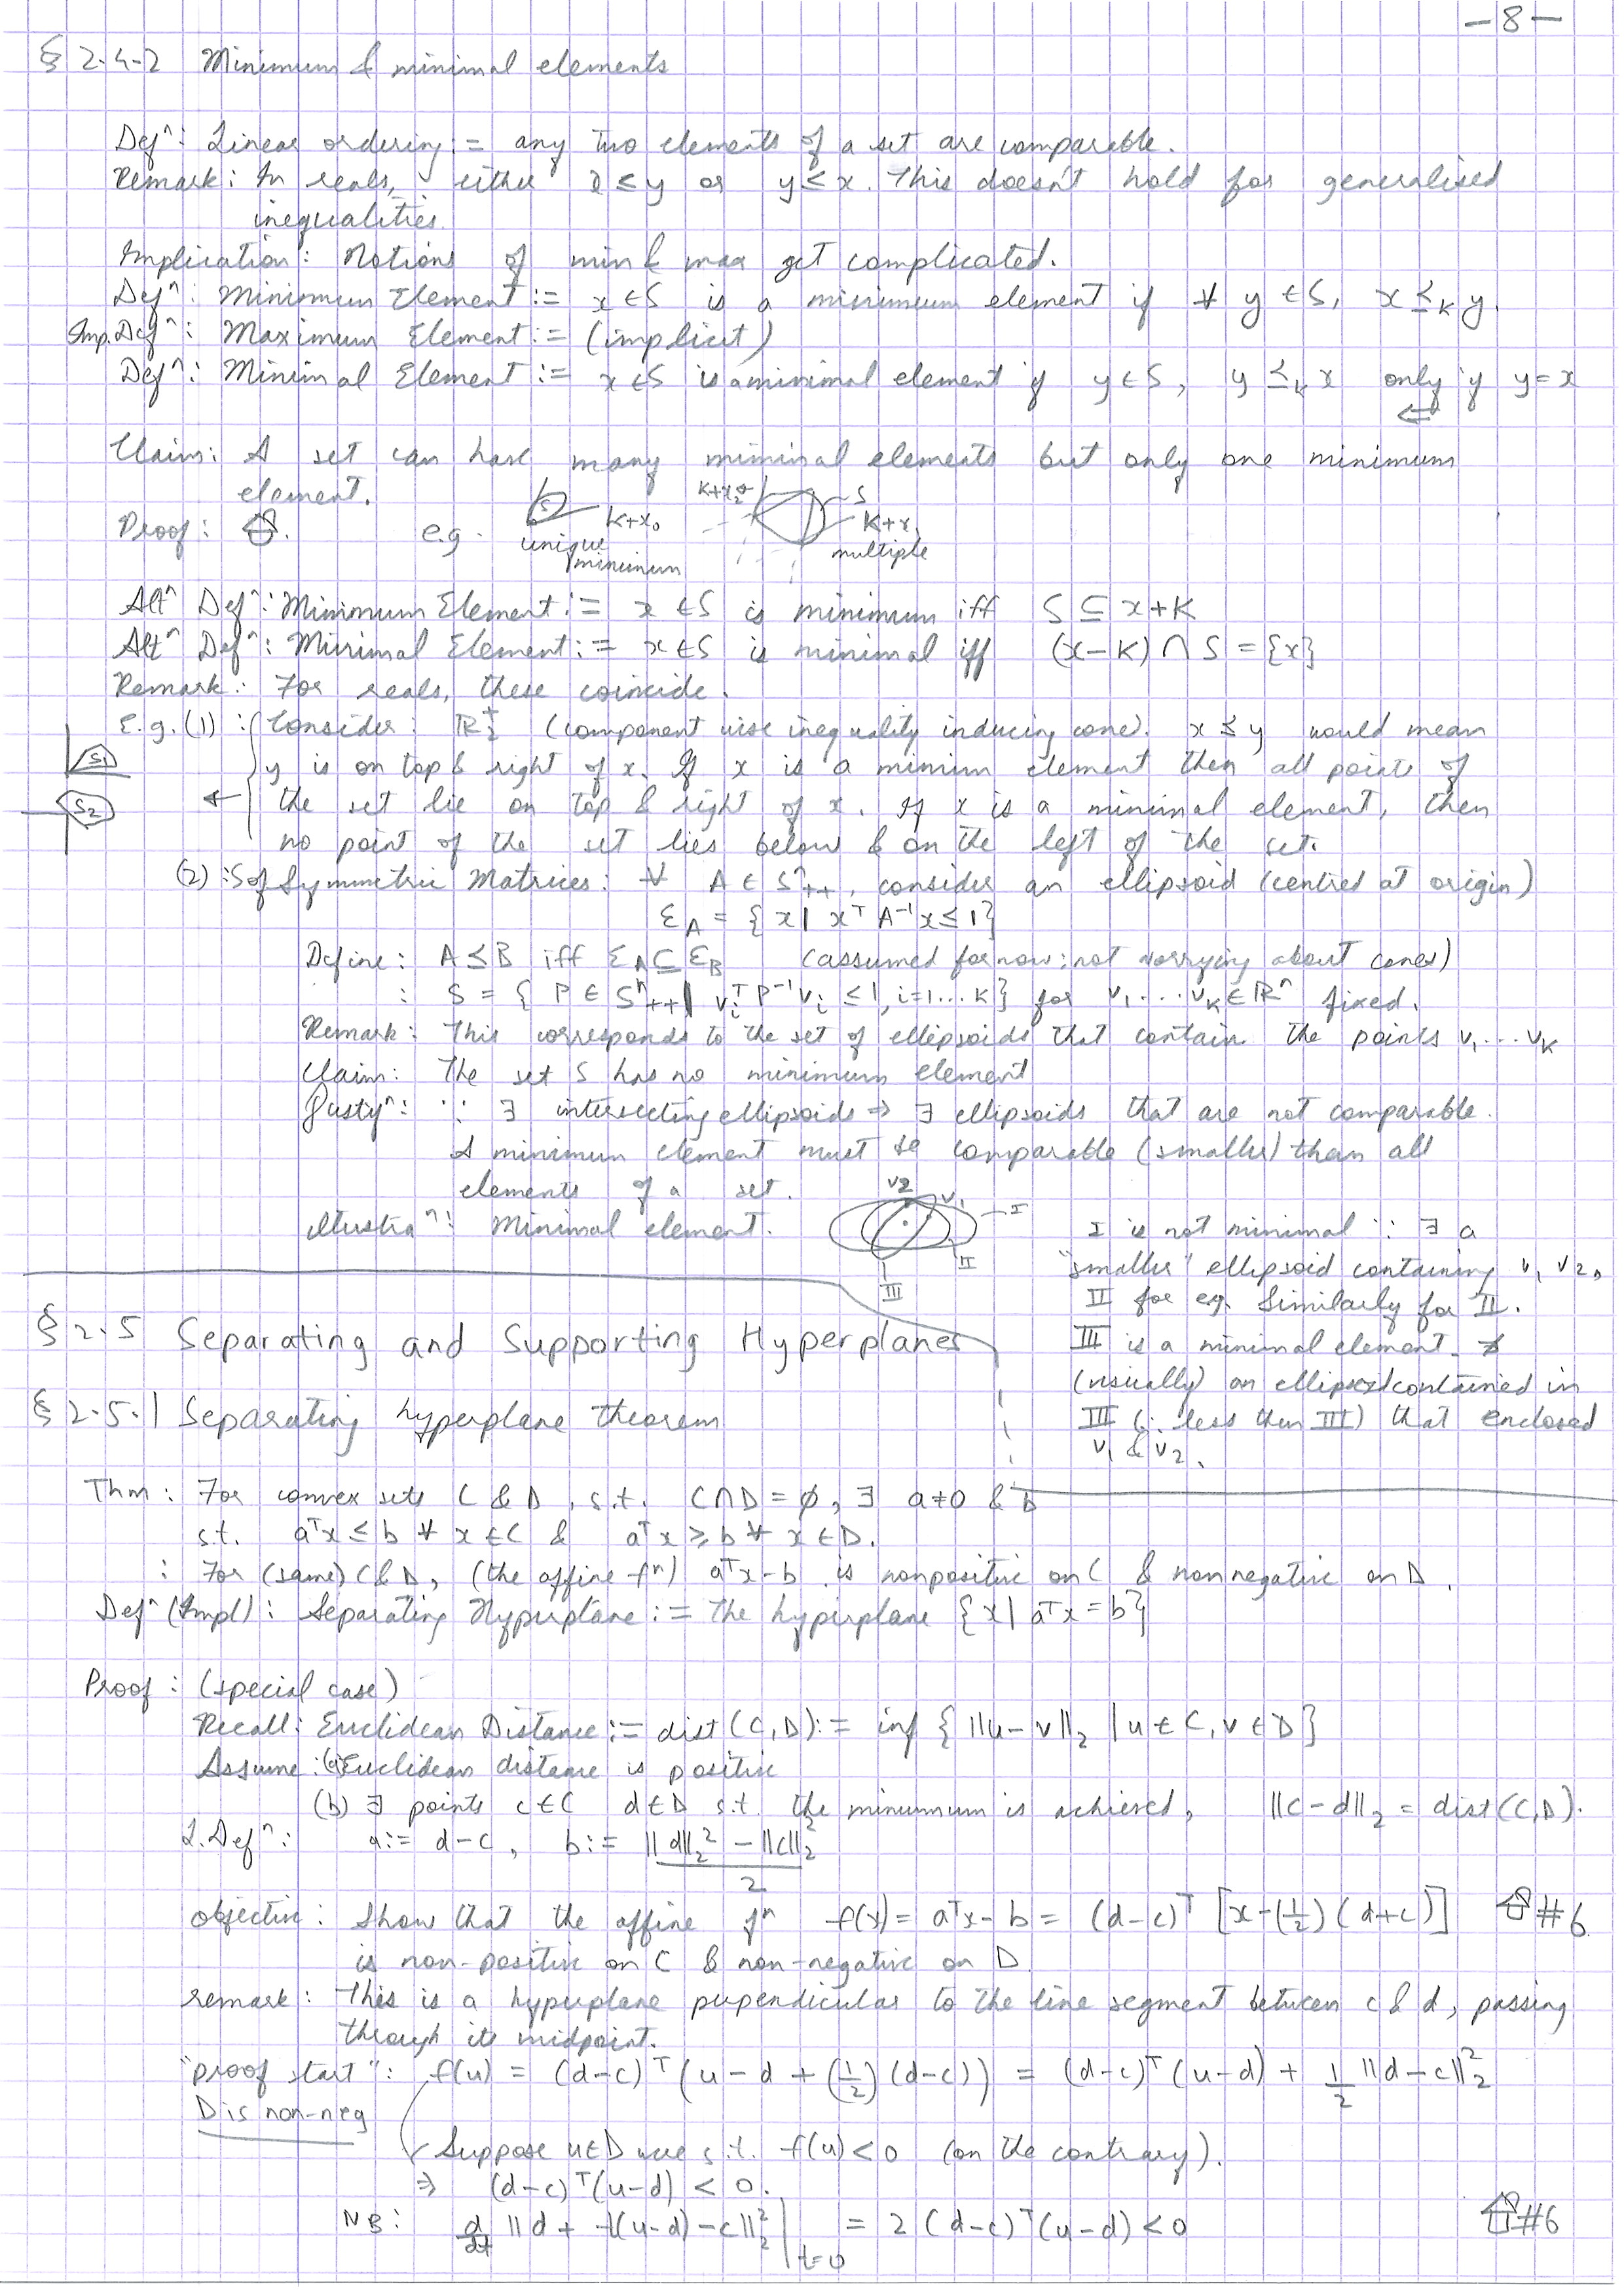 -8-
§ 2.4-2 Minimum & minimal elements
Defⁿ: Linear ordering := any two elements of a set are comparable.
Remark: In reals, either x ≤ y or y ≤ x. This doesn't hold for generalised
inequalities.
Implication: Notions of min & max get complicated.
Defⁿ: Minimum Element := x ∈ S is a minimum element if ∀ y ∈ S, x ≤_K y.
Imp. Defⁿ: Maximum Element := (implicit)
Defⁿ: Minimal Element := x ∈ S is a minimal element if y ∈ S, y ≤_K x only if y = x
⇐
Claim: A set can have many minimal elements but only one minimum
element.
Proof: e.g. unique minimum K+x₀ K+x₂ S K+x₁ multiple
Altⁿ Defⁿ: Minimum Element := x ∈ S is minimum iff S ⊆ x+K
Altⁿ Defⁿ: Minimal Element := x ∈ S is minimal iff (x−K) ∩ S = {x}
Remark: For reals, these coincide.
E.g. (1) : Consider: ℝ²₊ (component wise inequality inducing cone). x ≤ y would mean
S1 y is on top & right of x. If x is a minimum element then all points of
S2 the set lie on top & right of x. If x is a minimal element, then
no point of the set lies below & on the left of the set.
(2) : S of Symmetric Matrices: ∀ A ∈ Sⁿ₊₊, consider an ellipsoid (centred at origin)
ε_A = {x| xᵀA⁻¹x ≤ 1}
Define: A ≤ B iff ε_A ⊆ ε_B (assumed for now: not worrying about cones)
: S = { P ∈ Sⁿ₊₊ | vᵢᵀP⁻¹vᵢ ≤ 1, i=1...K} for v₁...v_K ∈ ℝⁿ fixed.
Remark: This corresponds to the set of ellipsoids that contain the points v₁...v_K
Claim: The set S has no minimum element
Justyⁿ: ∵ ∃ intersecting ellipsoids ⇒ ∃ ellipsoids that are not comparable.
A minimum element must be comparable (smaller) than all
elements of a set.
Illustraⁿ: Minimal element. v2 v₁ I II III
I is not minimal ∵ ∃ a
"smaller" ellipsoid containing v₁ v₂,
II for eg. Similarly for II.
III is a minimal element. ∄
(visually) an ellipsoid contained in
III (∴ less than III) that enclosed
v₁ & v₂.
§ 2.5 Separating and Supporting Hyperplanes
§ 2.5.1 Separating hyperplane theorem
Thm: For convex sets C & D, s.t. C∩D = ∅, ∃ a≠0 & b
s.t. aᵀx ≤ b ∀ x ∈ C & aᵀx ≥ b ∀ x ∈ D.
: For (same) C & D, (the affine fⁿ) aᵀx−b is nonpositive on C & nonnegative on D.
Defⁿ (Impl): Separating Hyperplane := The hyperplane {x| aᵀx = b}
Proof: (special case)
Recall: Euclidean Distance := dist(C,D) := inf {||u−v||₂ | u ∈ C, v ∈ D}
Assume: (a) Euclidean distance is positive
(b) ∃ points c ∈ C d ∈ D s.t. the minumum is achieved, ||c−d||₂ = dist(C,D).
L. Defⁿ: a := d−c, b := (||d||₂² − ||c||₂²)/2
objective: Show that the affine fⁿ f(x) = aᵀx − b = (d−c)ᵀ [x−(½)(d+c)] #6
is non-positive on C & non-negative on D
remark: This is a hyperplane perpendicular to the line segment between c & d, passing
through its midpoint.
"proof start": f(u) = (d−c)ᵀ(u−d+(½)(d−c)) = (d−c)ᵀ(u−d) + ½||d−c||₂²
D is non-neg
Suppose u∈D were s.t. f(u)<0 (on the contrary).
⇒ (d−c)ᵀ(u−d) < 0.
NB: d/dt ||d + t(u−d)−c||₂² |t=0 = 2(d−c)ᵀ(u−d) < 0 #6